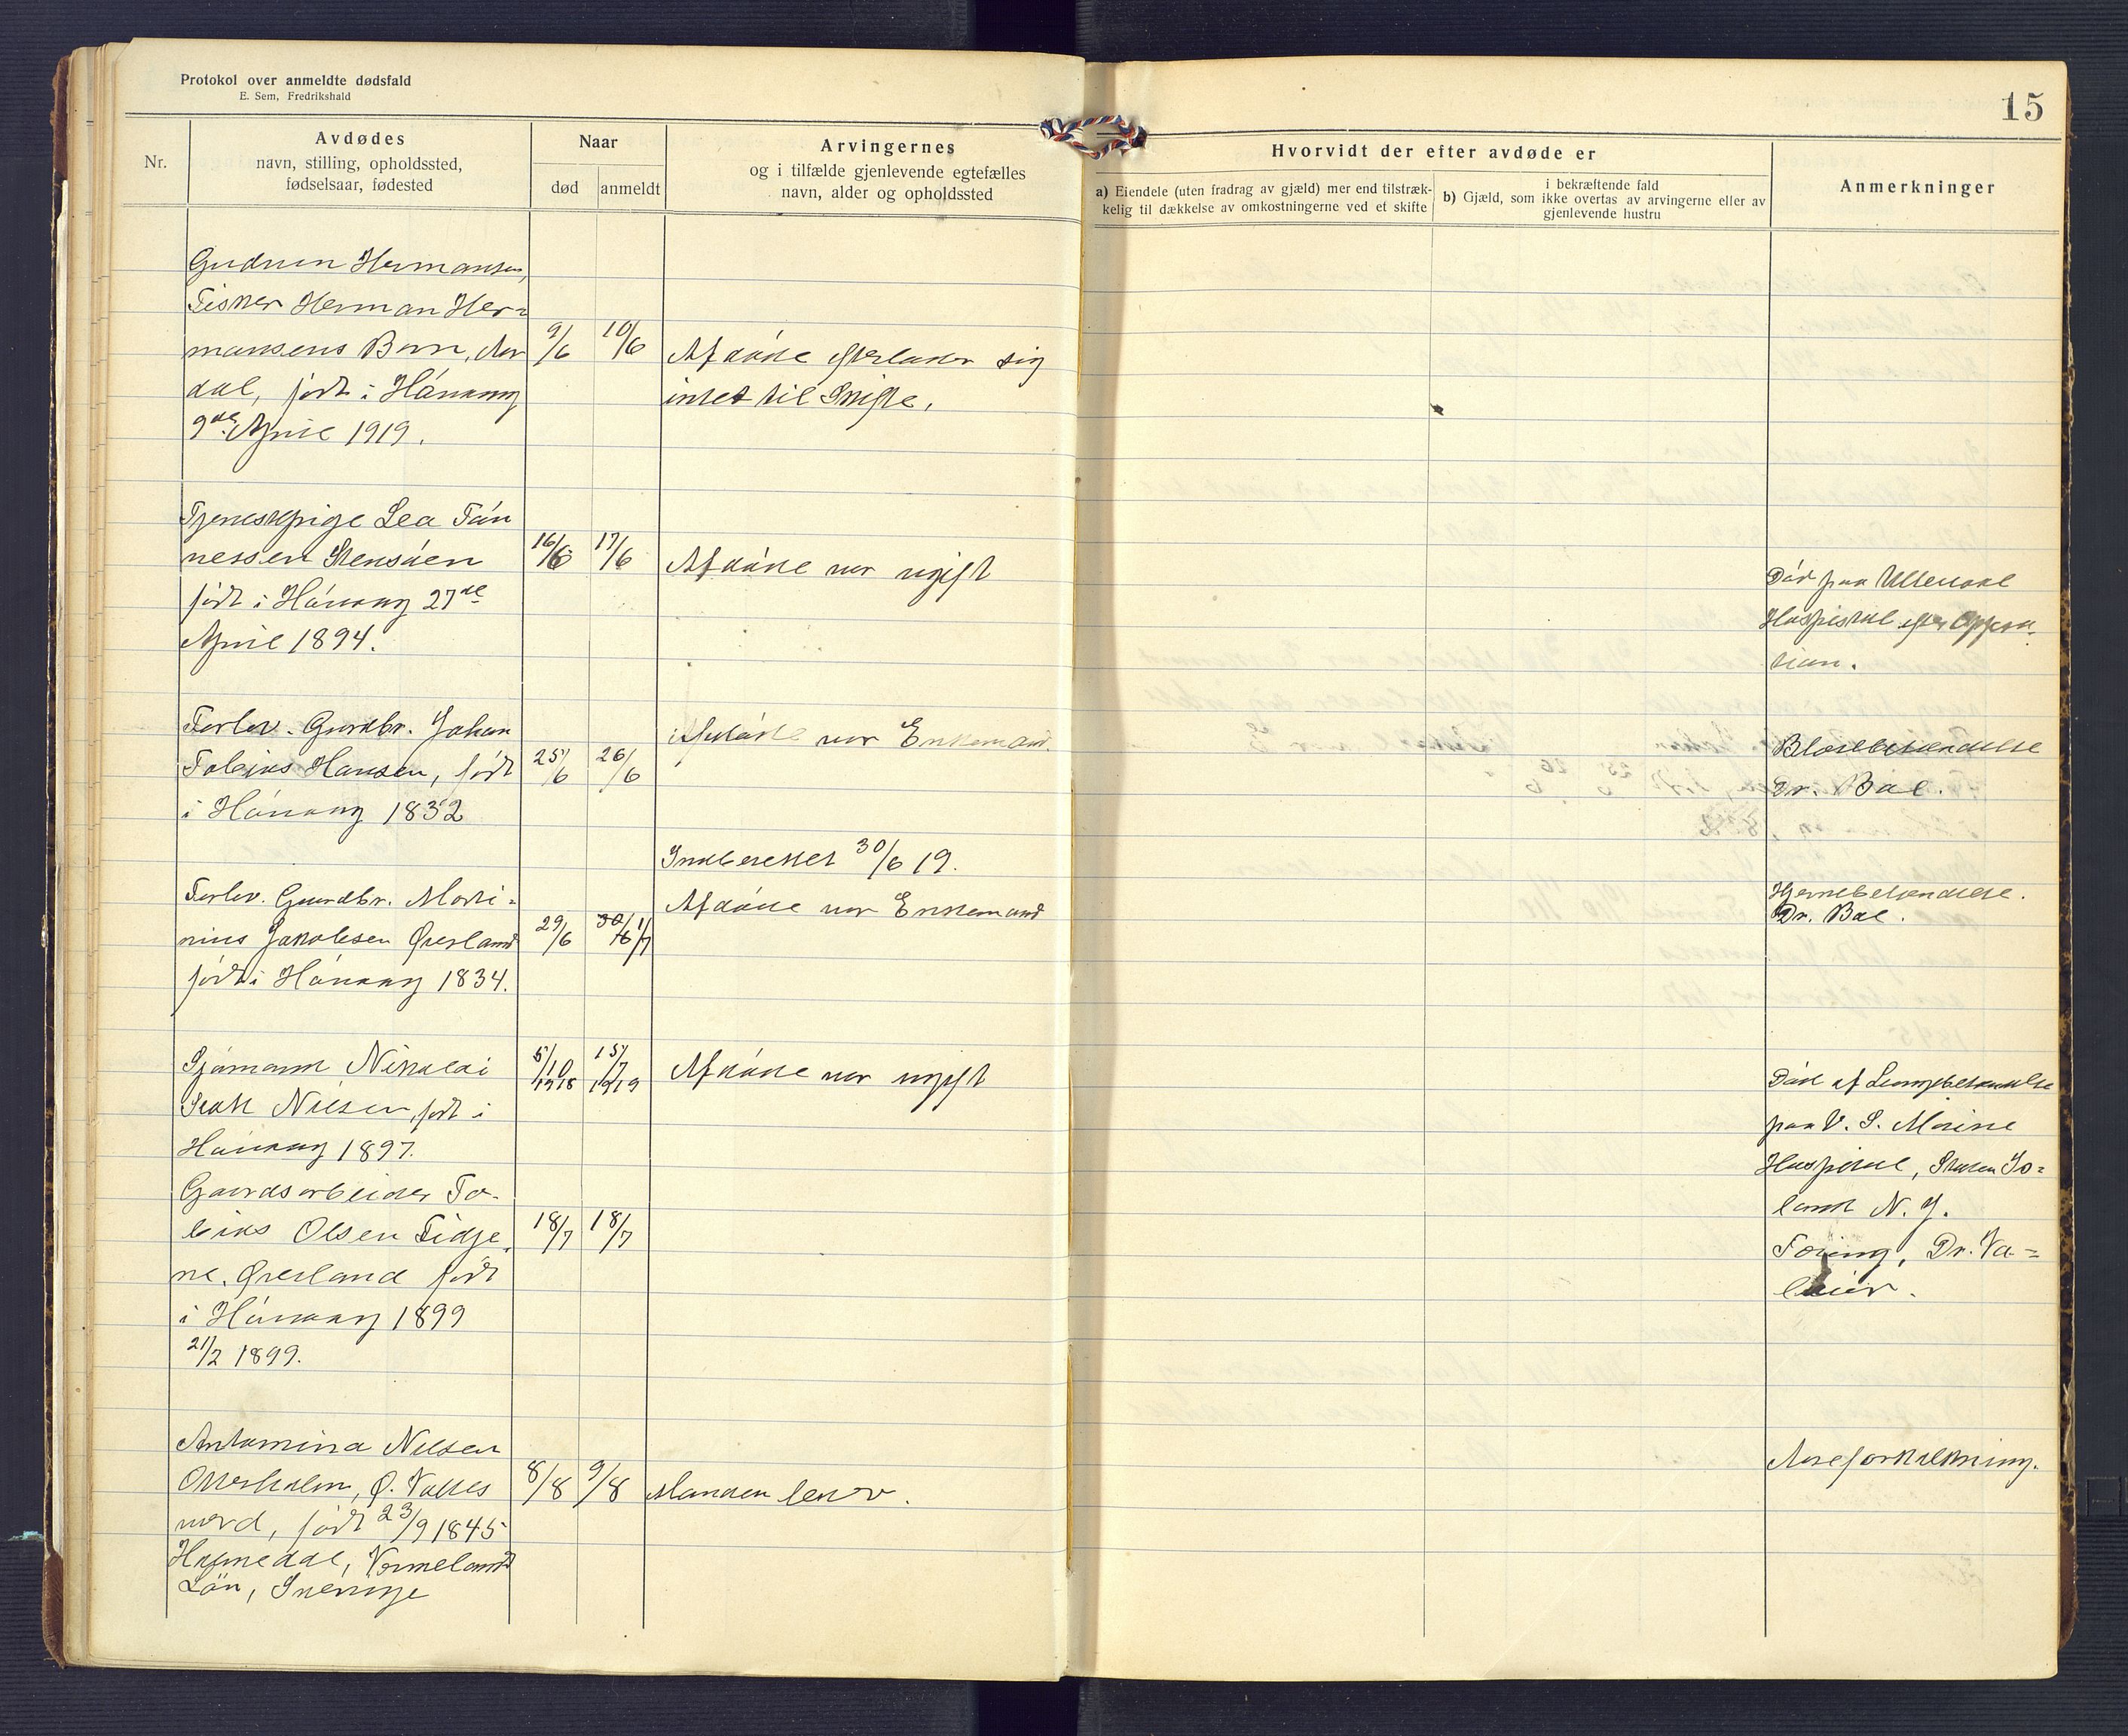 Protokol over anmeldte dødsfald
E. Sem, Fredrikshald
15
Nr.
Avdødes
navn, stilling, opholdssted,
fødselsaar, fødested
Naar
død
anmeldt
Arvingernes
og i tilfælde gjenlevende egtefælles
navn, alder og opholdssted
Hvorvidt der efter avdøde er
a) Eiendele (uten fradrag av gjæld) mer end tilstræk-
kelig til dækkelse av omkostningerne ved et skifte
i bekræftende fald
b) Gjæld, som ikke overtas av arvingerne eller av
gjenlevende hustru
Anmerkninger
Gudrun Hermansen,
Fisker Herman Her=
mansens Barn,
dal, født i Hånang
9de April 1919.
9/6
10/6
Afdøde efterlader sig
intet til Skifte.
Tjenestepige Lea Tøn
nessen Stensøen
født i Hånang 27de
April 1894.
16/6
17/6
Afdøde var ugift
Død paa Ullevaal
Hospital efter Oppera-
sion.
Forhv. Gaardbr. Johan
Tobias Hansen, født
i Hånang 1832
25/6
26/6
Afdøde var Enkemand.
Blærebetændelse
Dr. Bal.
Indberettet 30/6 19.
Forhv. Gaardbr. Marti=
nius Jakobsen Øresland
født i Hånang 1834.
29/6
30/6 1/7
Afdøde var Enkemand
Hjernebetændelse.
Dr. Bal.
Sjømand Nikolai
Nilsen, født i
Hånang 1897.
5/10 1918
15/7 1919
Afdøde var ugift
Død af Lungebetændelse
paa U. S. Marine
Hospital, Staten Is=
land N. Y.
Gaardsarbeider To-
bias Olsen Tidje
ne, Øresland født
i Hånang 1899
21/2 1899.
18/7
18/7
Tæring, Dr. Va=
leur.
Antomina Nilsen
Otterholm, Ø. Valles
værd, født 23/9 1845
Vermelands
Län, Sverige
8/8
9/8
Manden lever.
Aareforkalkning.